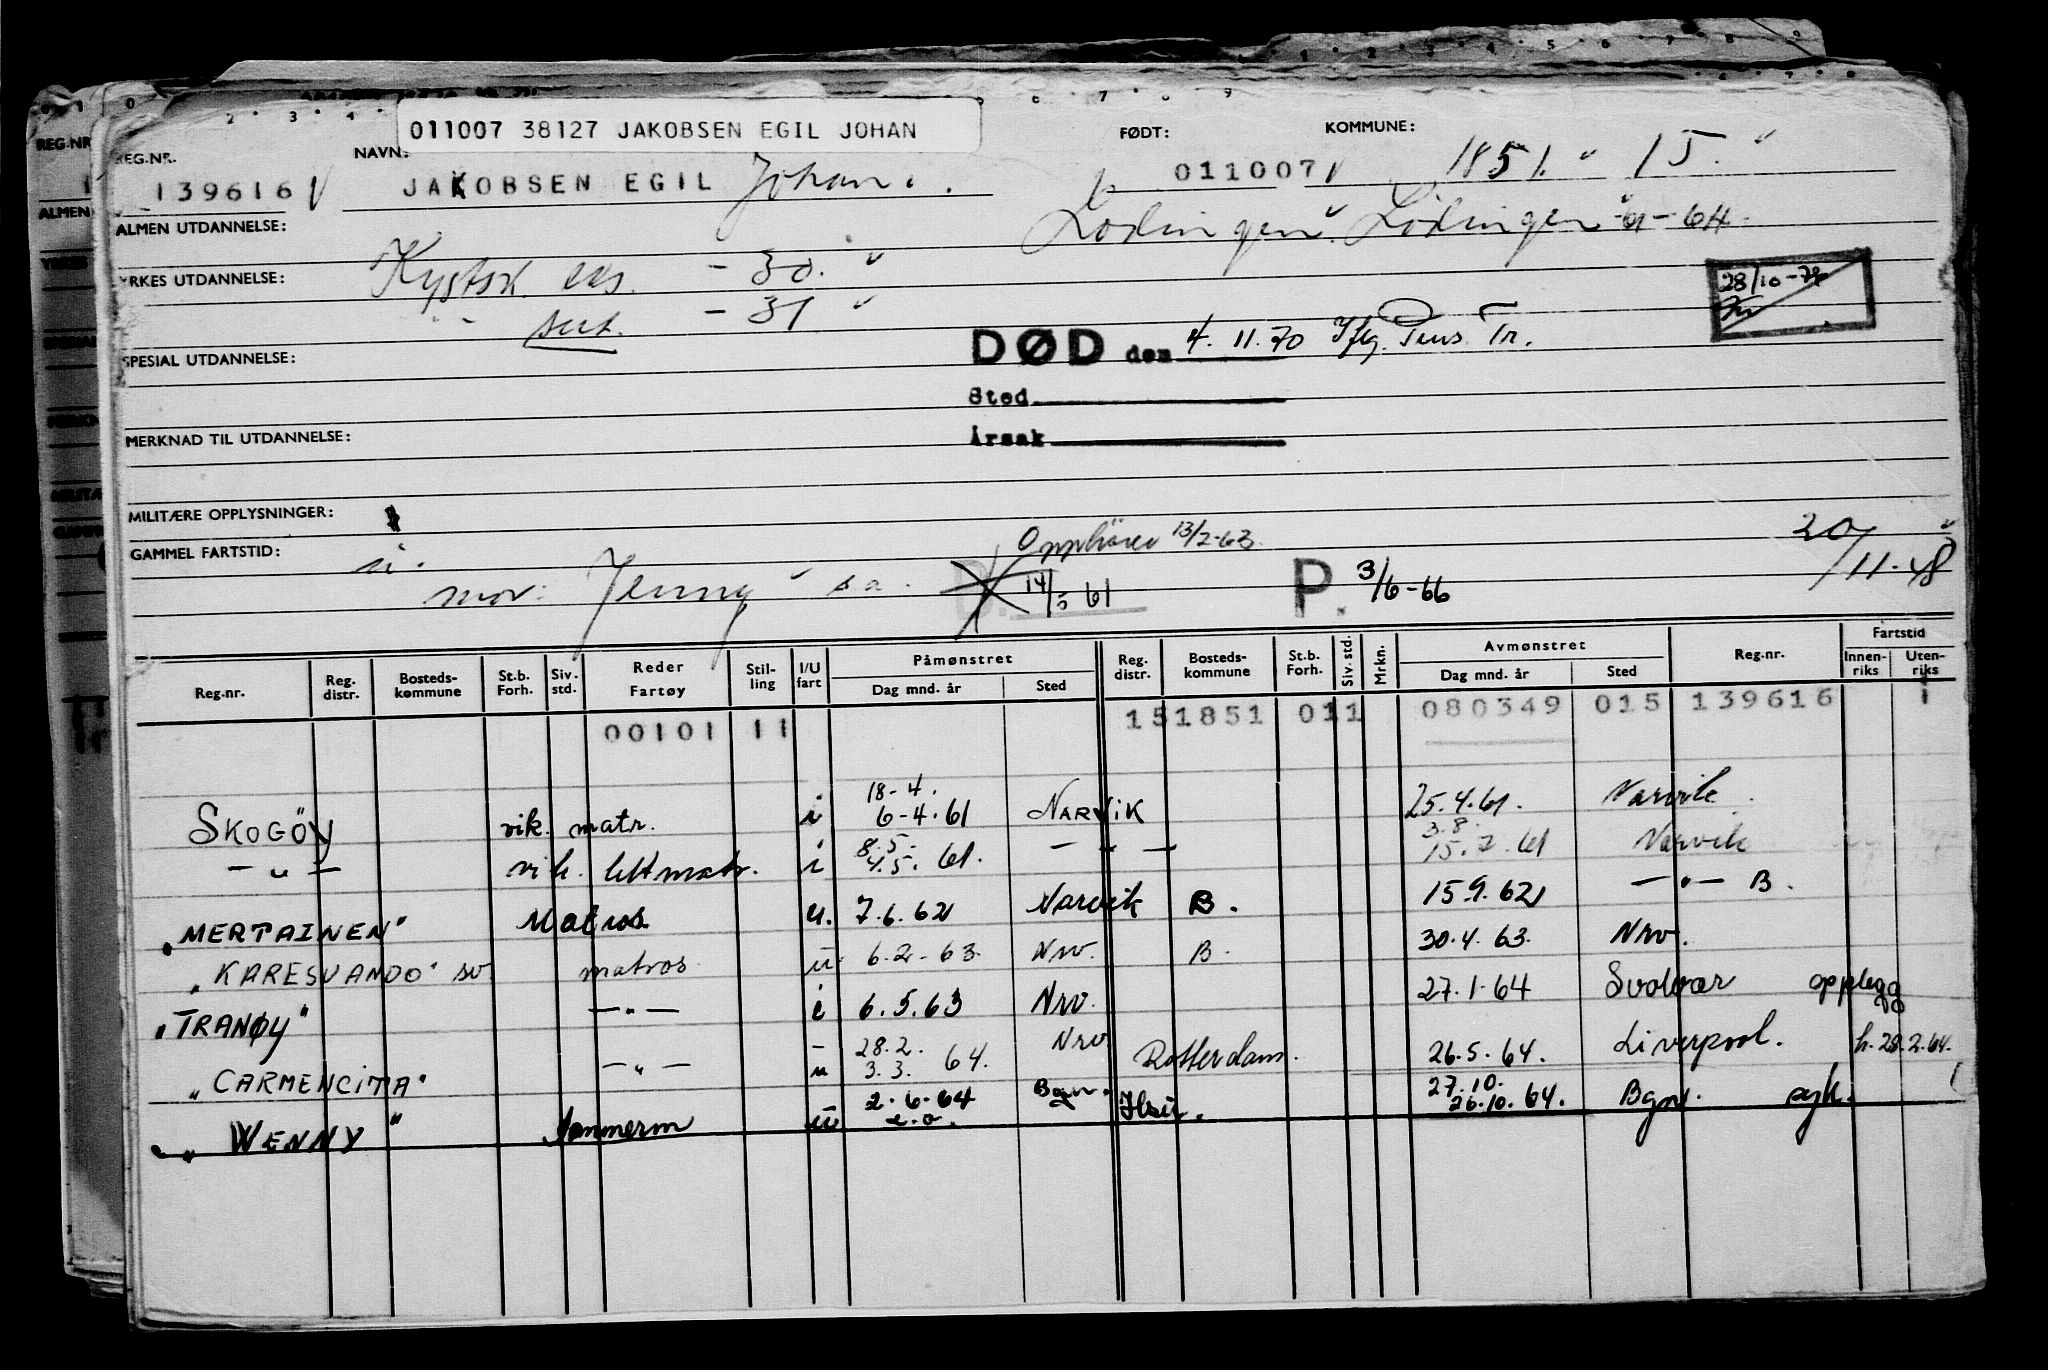 011007 38127 JAKOBSEN EGIL JOHAN
REG.NR. 139616
NAVN: JAKOBSEN EGIL Johan.
FØDT: 011007
KOMMUNE: 1851. 15.
ALMEN UTDANNELSE:
Lødingen. Lødingen -61-64.
YRKES UTDANNELSE: Kystsk. eks. - 30.
28/10-74
- 31
SPESIAL UTDANNELSE:
DØD den 4.11.70 Iflg. Pens Tr.
Sted
Årsak
MERKNAD TIL UTDANNELSE:
MILITÆRE OPPLYSNINGER:
GAMMEL FARTSTID:
Opphører 13/2-63.
20/11-48
mor: Jenny sa.
14/5 61
P. 3/6-66
Reg.nr. Reg. distr. Bosteds-kommune St.b. Forh. Siv. std. Reder Fartøy Stil-ling I/U fart Påmønstret Dag mnd. år Sted Reg. distr. Bosteds-kommune St.b. Forh. Siv. std. Mrkn. Avmønstret Dag mnd. år Sted Reg.nr. Fartstid Innen-riks Uten-riks
00101 11 151851 011 080349 015 139616 1
SKOGÖY vik. matr. i 18-4. 6-4.61 NARVIK 25.4.61. Narvik
— " — vik. lettmatr. i 8.5. 4.5. 61. — " — 3.8. 15.7.61 Narvik
"MERTAINEN" Matros u. 7.6.62 Narvik B. 15.9.62 — " — B.
"KARESUANDO" sv. matros u. 6.2-63 Nrv. B. 30.4.63. Nrv.
"TRANØY" — " — i 6.5.63 Nrv. 27.1.64 Svolvær opplegg
"CARMENCITA" — " — u 28.2. 3.3. 64. Nrv Rotterdam. 26.5.64. Liverpool. h. 28.2.64.
"WENNY" tømmerm u 2.6.64 Bgn. 27.10. 26.10.64. Bgn.